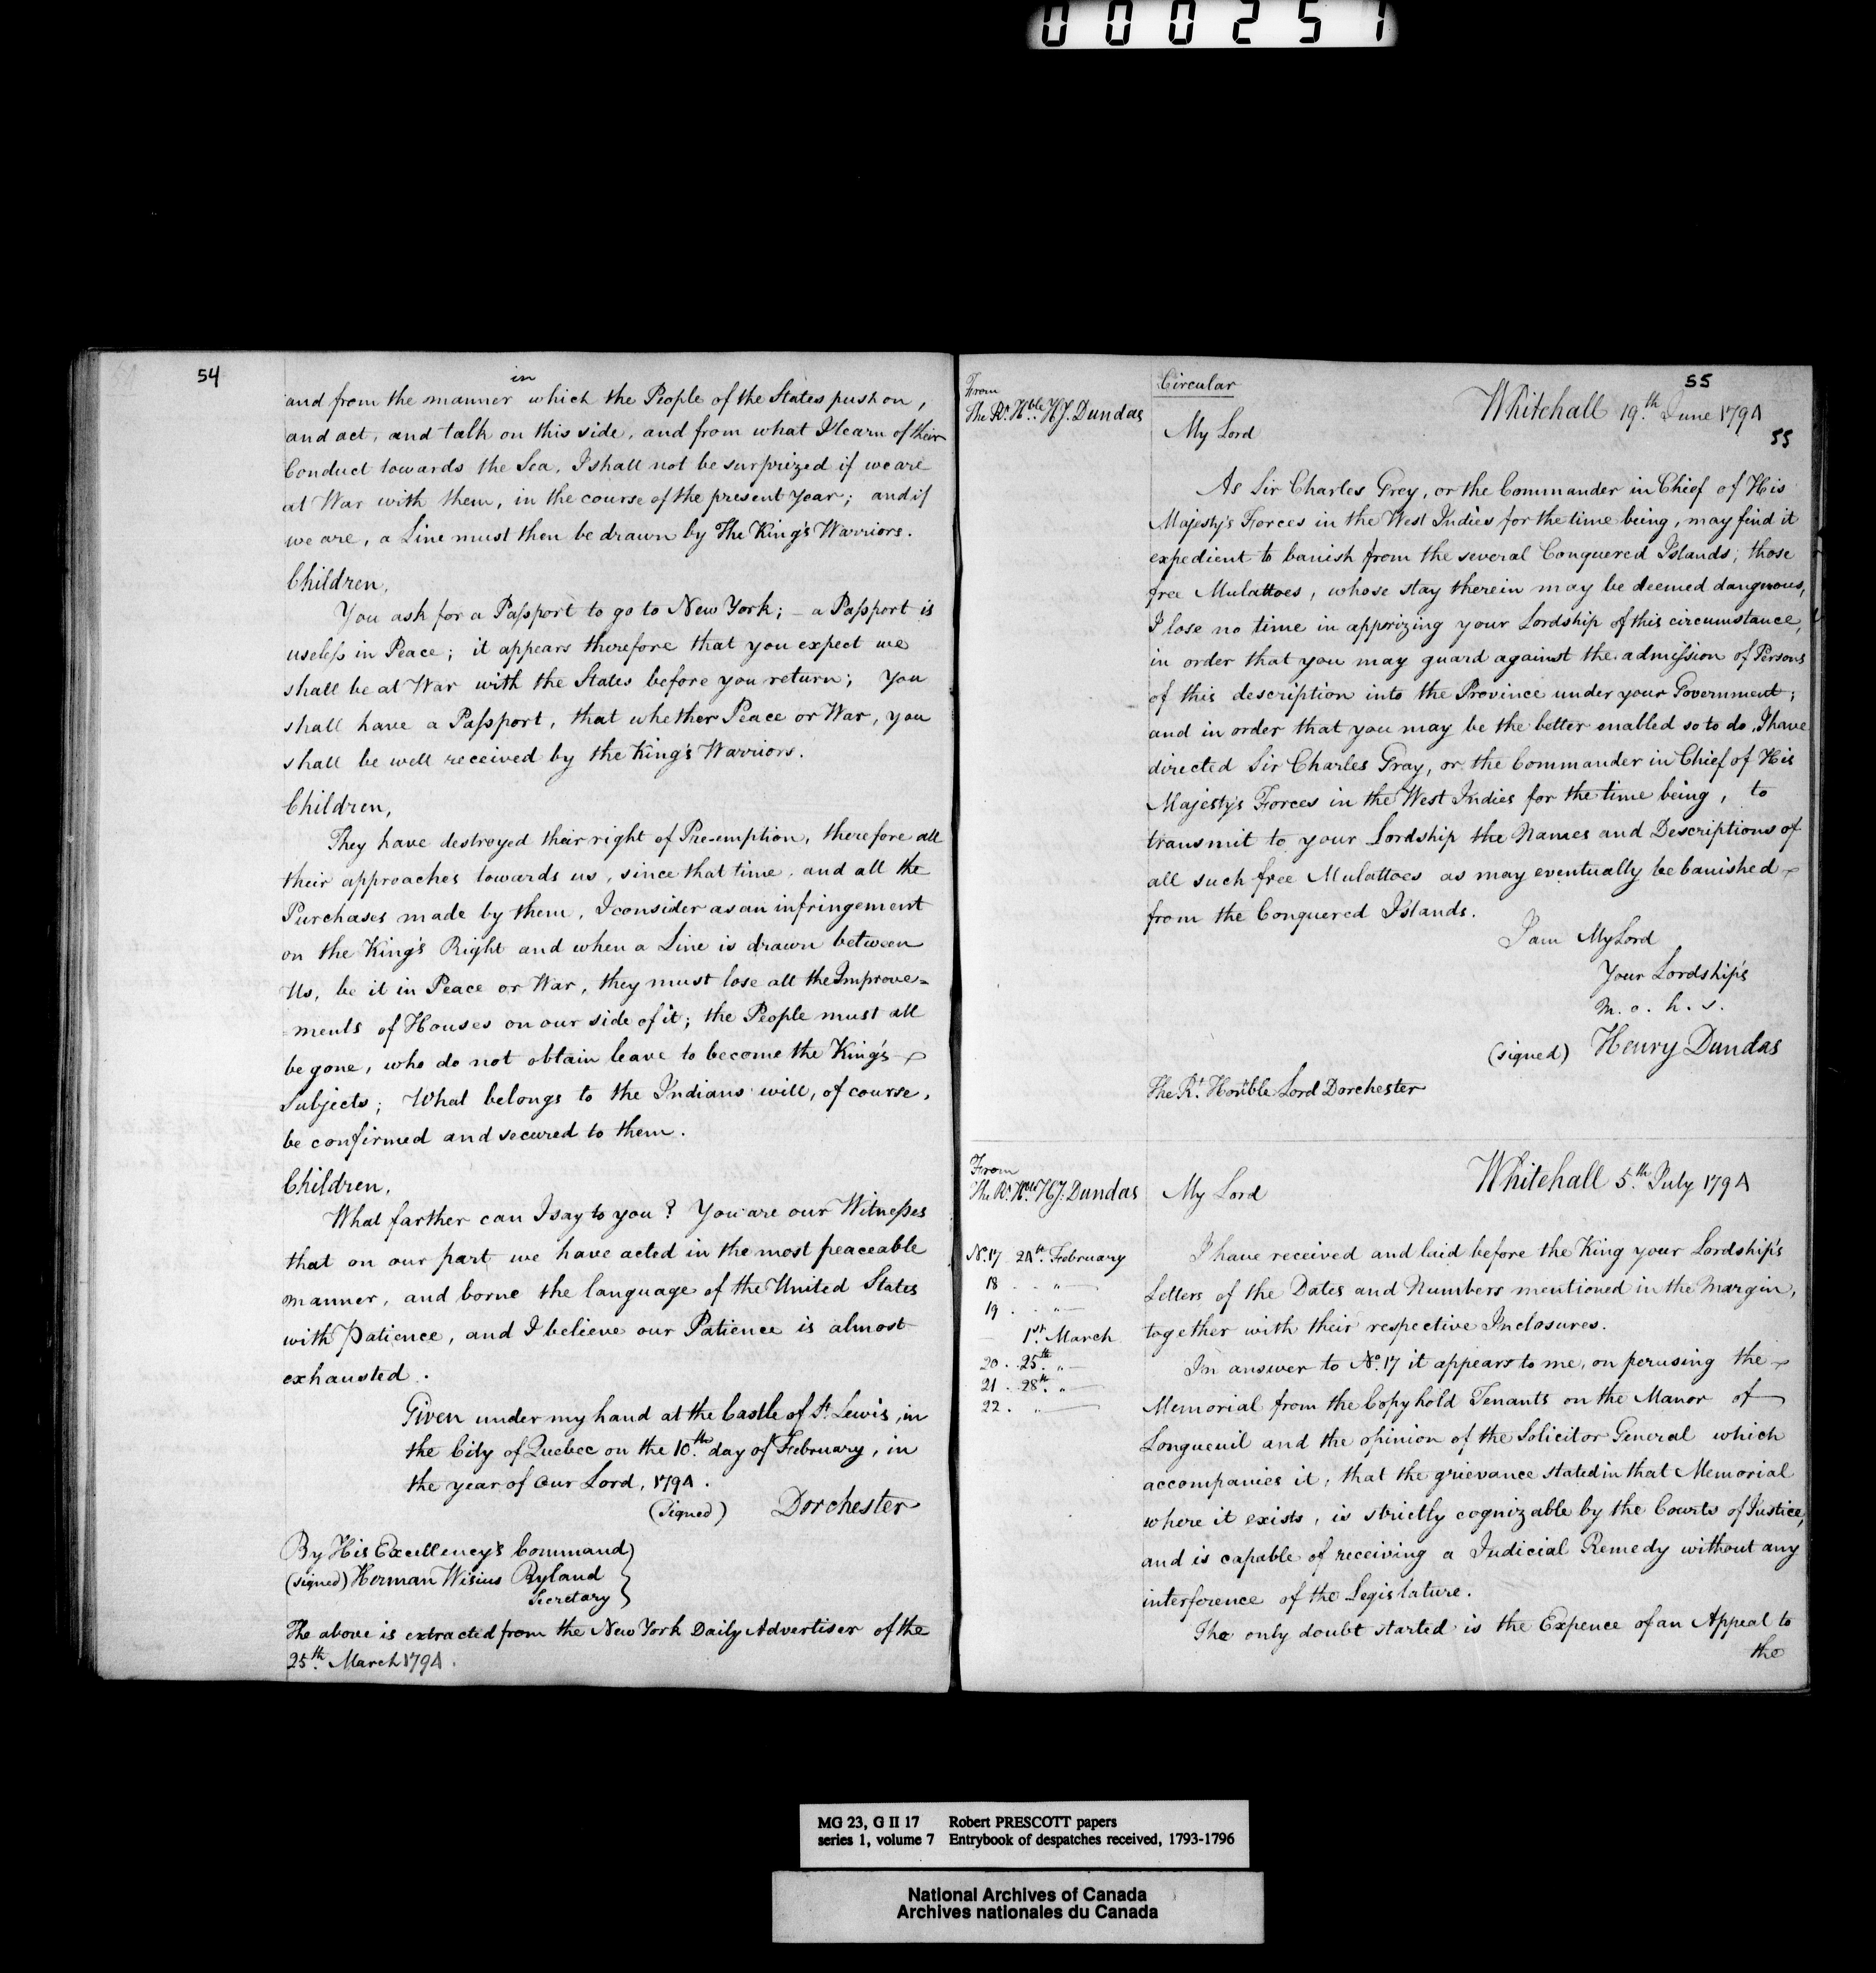 000251
54
and from the manner in which the People of the States push on,
and act, and talk on this side, and from what I learn of their
Conduct towards the Sea, I shall not be surprized if we are
at War with them, in the course of the present year; and if
we are, a Line must then be drawn by The King's Warriors.
Children,
You ask for a Paſsport to go to New York; – a Paſsport is
useleſs in Peace; it appears therefore that you expect we
shall be at War with the States before you return; You
shall have a Paſsport, that whether Peace or War, you
shall be well received by the King's Warriors.
Children,
They have destroyed their right of Pre-emption, therefore all
their approaches towards us, since that time, and all the
Purchases made by them, I consider as an infringement
on the King's Right and when a Line is drawn between
Us, be it in Peace or War, they must lose all the Improve=
=ments of Houses on our side of it; the People must all
be gone, who do not obtain leave to become the King's
Subjects; What belongs to the Indians will, of course,
be confirmed and secured to them.
Children,
What farther can I say to you? You are our Witneſses
that on our part we have acted in the most peaceable
manner, and borne the language of the United States
with Patience, and I believe our Patience is almost
exhausted.
Given under my hand at the Castle of St. Lewis, in
the City of Quebec on the 10.th day of February, in
the year of Our Lord, 1794.
(Signed) Dorchester
By His Excellency's Command
(signed) Herman Wisius Ryland
Secretary
The above is extracted from the New York Daily Advertiser of the
25.th March 1794.
55
From
The Rt. Hble. Hy. Dundas
Circular
Whitehall 19.th June 1794
55
My Lord
As Sir Charles Grey, or the Commander in Chief of His
Majesty's Forces in the West Indies for the time being, may find it
expedient to banish from the several Conquered Islands, those
free Mulattoes, whose stay therein may be deemed dangerous,
I lose no time in apprizing your Lordship of this circumstance,
in order that you may guard against the admiſsion of Persons
of this description into the Province under your Government;
and in order that you may be the better enabled so to do, I have
directed Sir Charles Gray, or the Commander in Chief of His
Majesty's Forces in the West Indies for the time being, to
transmit to your Lordship the Names and Descriptions of
all such free Mulattoes as may eventually be banished
from the Conquered Islands.
I am My Lord
Your Lordship's
m. o. h. s.
(signed) Henry Dundas
The Rt. Honble Lord Dorchester
From
The Rt. Hble Hy. Dundas
Whitehall 5.th July 1794
My Lord
No. 17 24th. February
18 . . "
19 . . "
– 1st. March
20 . 25.th "
21 . 28th. "
22 . "
I have received and laid before the King your Lordship's
Letters of the Dates and Numbers mentioned in the Margin,
together with their respective Inclosures.
In answer to No. 17 it appears to me, on perusing the
Memorial from the Copyhold Tenants on the Manor of
Longueuil and the opinion of the Solicitor General which
accompanies it, that the grievance stated in that Memorial
where it exists, is strictly cognizable by the Courts of Justice,
and is capable of receiving a Judicial Remedy without any
interference of the Legislature.
The only doubt started is the Expence of an Appeal to
the
MG 23, G II 17 Robert PRESCOTT papers
series 1, volume 7 Entrybook of despatches received, 1793-1796
National Archives of Canada
Archives nationales du Canada